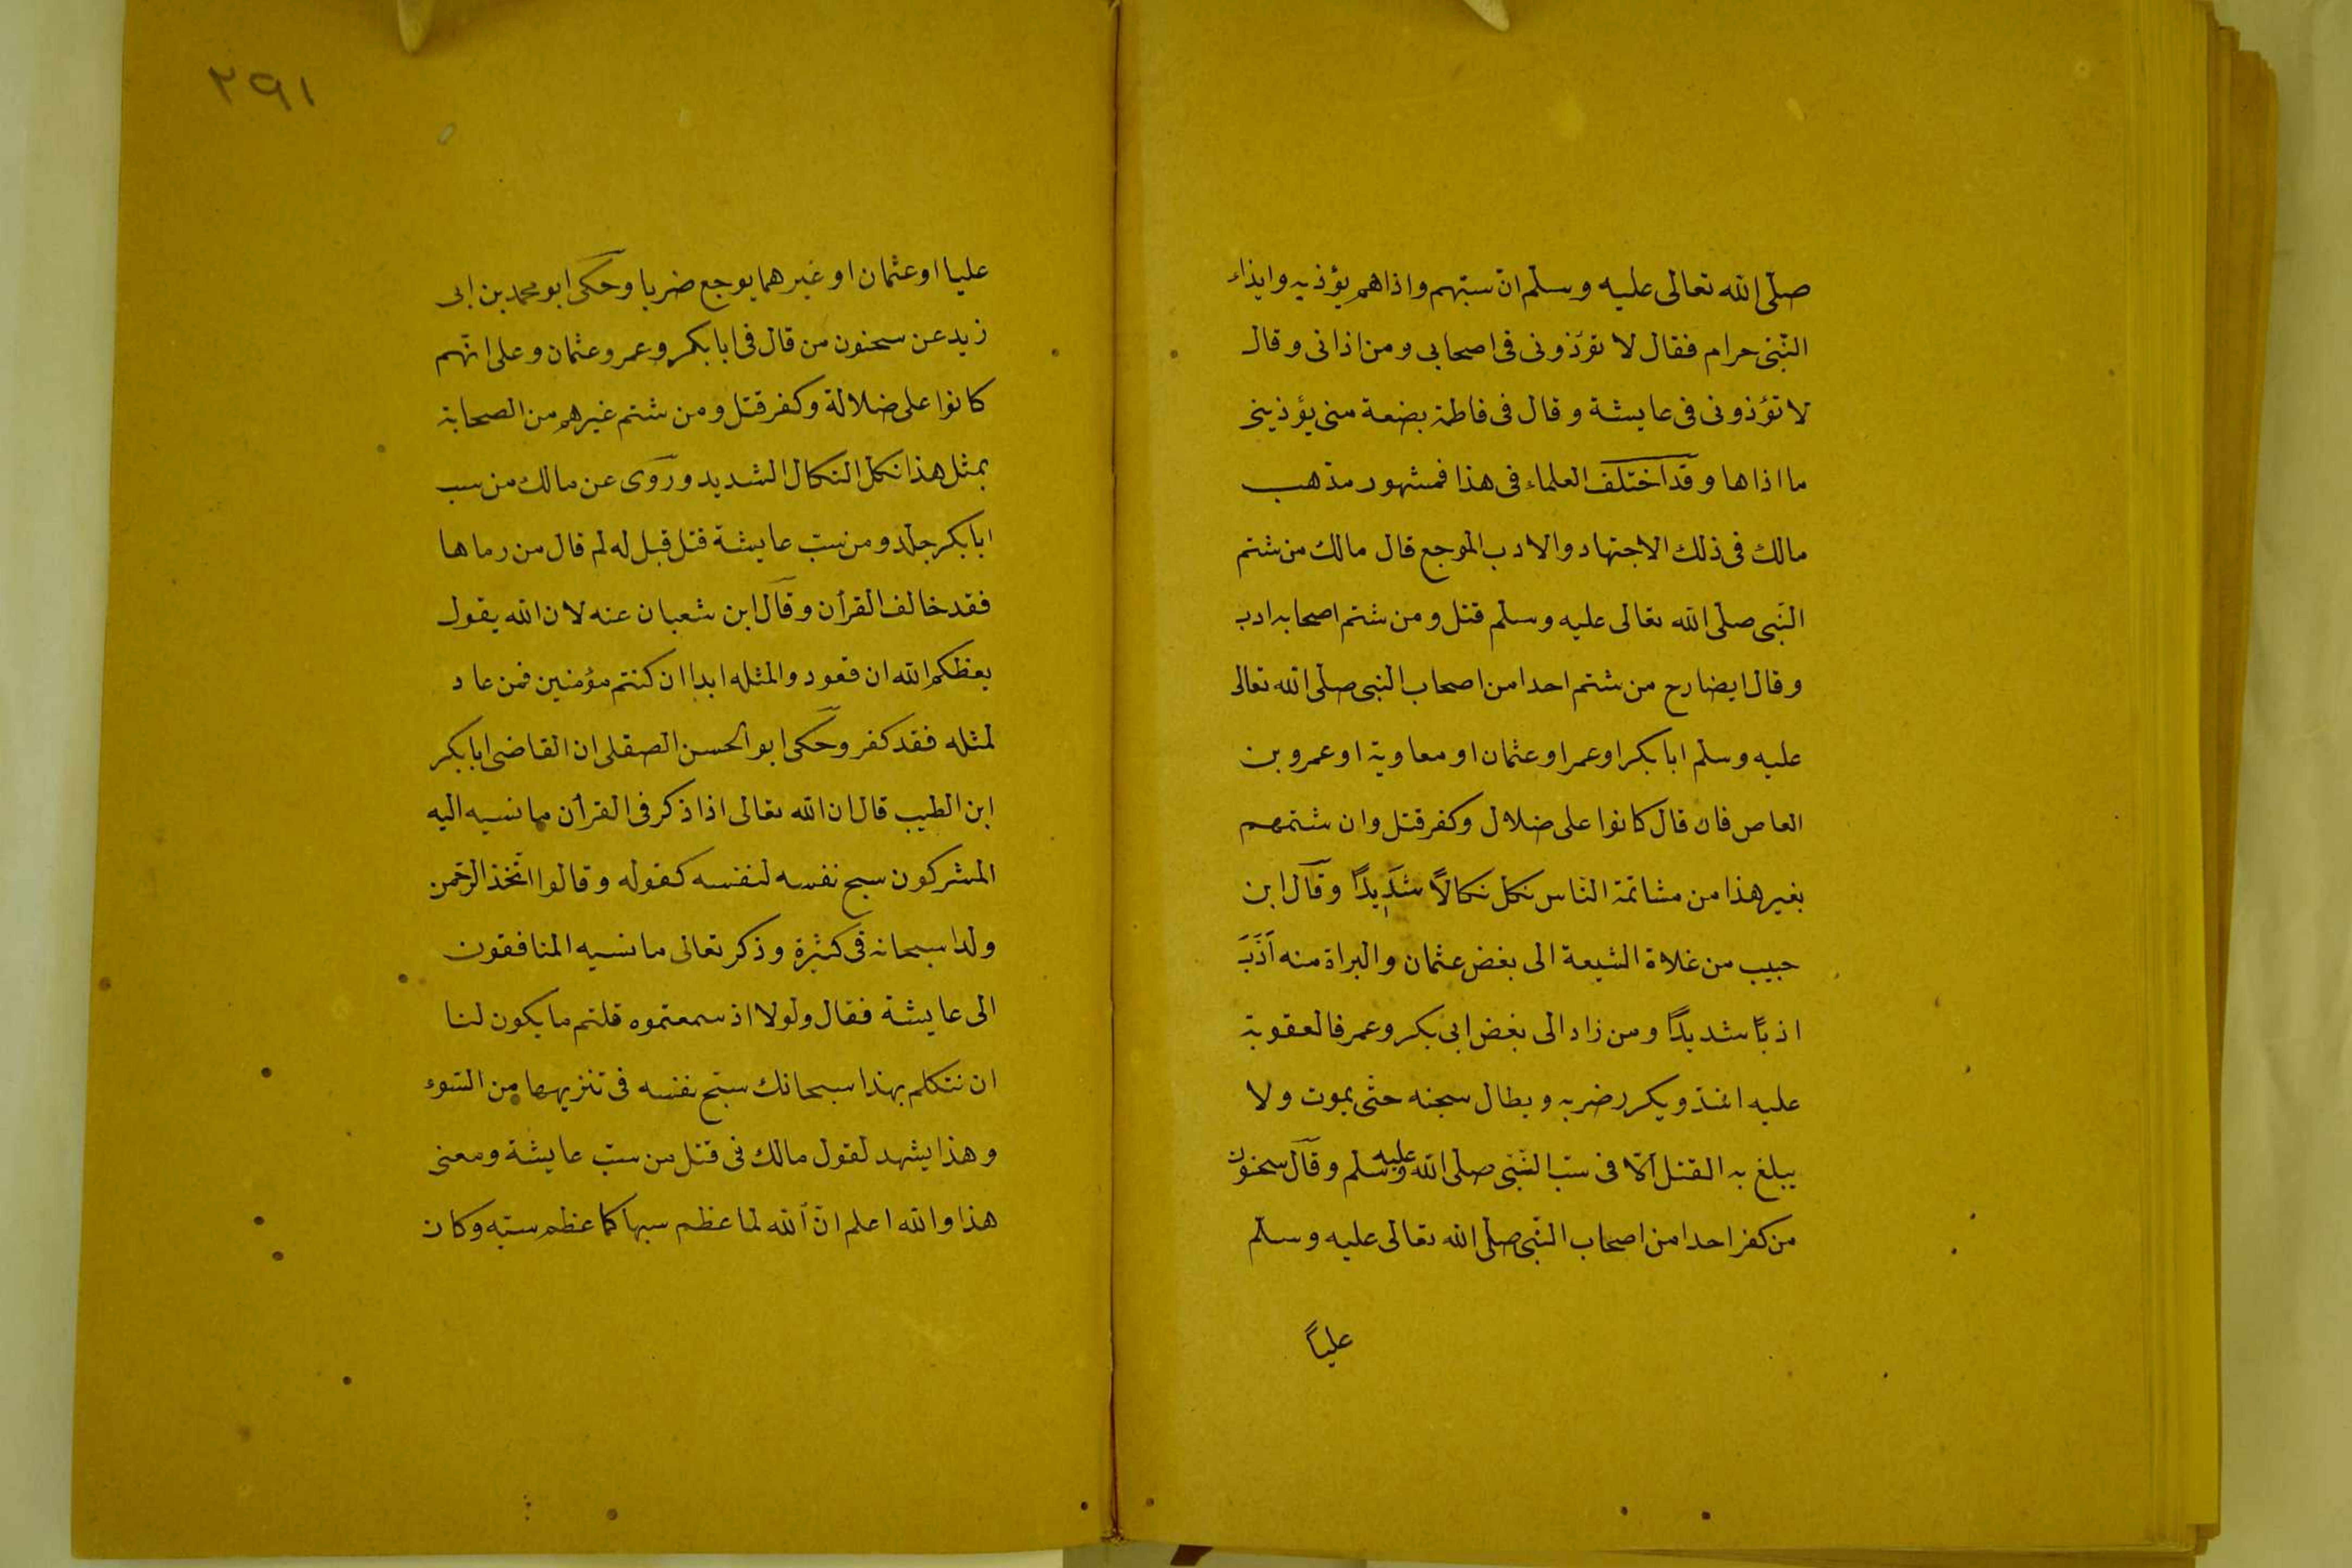 صلى الله تعالى عليه وسلم ان سبهم واذاهم يؤذيه وايذاء
النبى حرام فقال لا تؤذونى فى اصحابى ومن اذانى وقال
لا تؤذونى فى عايشة وقال فى فاطمة بضعة منى يؤذينى
ما اذاها وقد اختلف العلماء فى هذا فمشهور مذهب
مالك فى ذلك الاجتهاد والادب الموجع قال مالك من شتم
النبى صلى الله تعالى عليه وسلم قتل ومن شتم اصحابه ادب
وقال ايضا رح من شتم احدا من اصحاب النبى صلى الله تعالى
عليه وسلم ابا بكر او عمر او عثمان او معاوية او عمرو بن
العاص فان قال كانوا على ضلال وكفر قتل وان شتمهم
بغير هذا من مشاتمة الناس نكل نكالاً شديداً وقال ابن
حبيب من غلاة الشيعة الى بغض عثمان والبراة منه اَدَّبَ
ادبًا شديداً ومن زاد الى بغض ابى بكر وعمر فالعقوبة
عليه اشد ويكرر ضربه ويطال سجنه حتى يموت ولا
يبلغ به القتل الا فى سب النبى صلى الله عليه وسلم وقال سحنون
من كفر احدا من اصحاب النبى صلى الله تعالى عليه وسلم
علياً
٢٩١
عليا او عثمان او غيرهما يوجع ضربا وحكى ابو محمد بن ابى
زيد عن سحنون من قال فى ابا بكر وعمر وعثمان وعلى انهم
كانوا على ضلالة وكفر قتل ومن شتم غيرهم من الصحابة
بمثل هذا نكل النكال الشديد وروى عن مالك من سب
ابا بكر جلد ومن سب عايشة قتل قيل له لم قال من رماها
فقد خالف القرأن وقال ابن شعبان عنه لان الله يقول
يعظكم الله ان تعودوا لمثله ابدا ان كنتم مؤمنين فمن عاد
لمثله فقد كفر وحكى ابو الحسن الصقلى ان القاضى ابا بكر
ابن الطيب قال ان الله تعالى اذا ذكر فى القرأن ما نسبه اليه
المشركون سبح نفسه لنفسه كقوله وقالوا اتخذ الرحمن
ولدا سبحانه فى كثيرة وذكر تعالى ما نسبه المنافقون
الى عايشة فقال ولولا اذ سمعتموه قلتم ما يكون لنا
ان نتكلم بهذا سبحانك سبح نفسه فى تنزيهها من السوء
وهذا يشهد لقول مالك فى قتل من سب عايشة ومعنى
هذا والله اعلم ان الله لما عظم سبها كما عظم سبه وكان